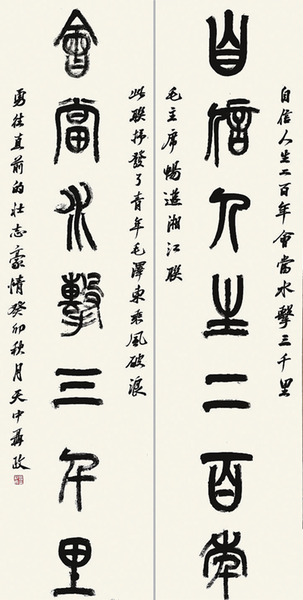 自信人生二百年會當水擊三千里
自信人生二百年
毛主席暢遊湘江聯
此聯抒發了青年毛澤東乘風破浪
會當水擊三千里
勇往直前的壯志豪情癸卯秋月天中聶政